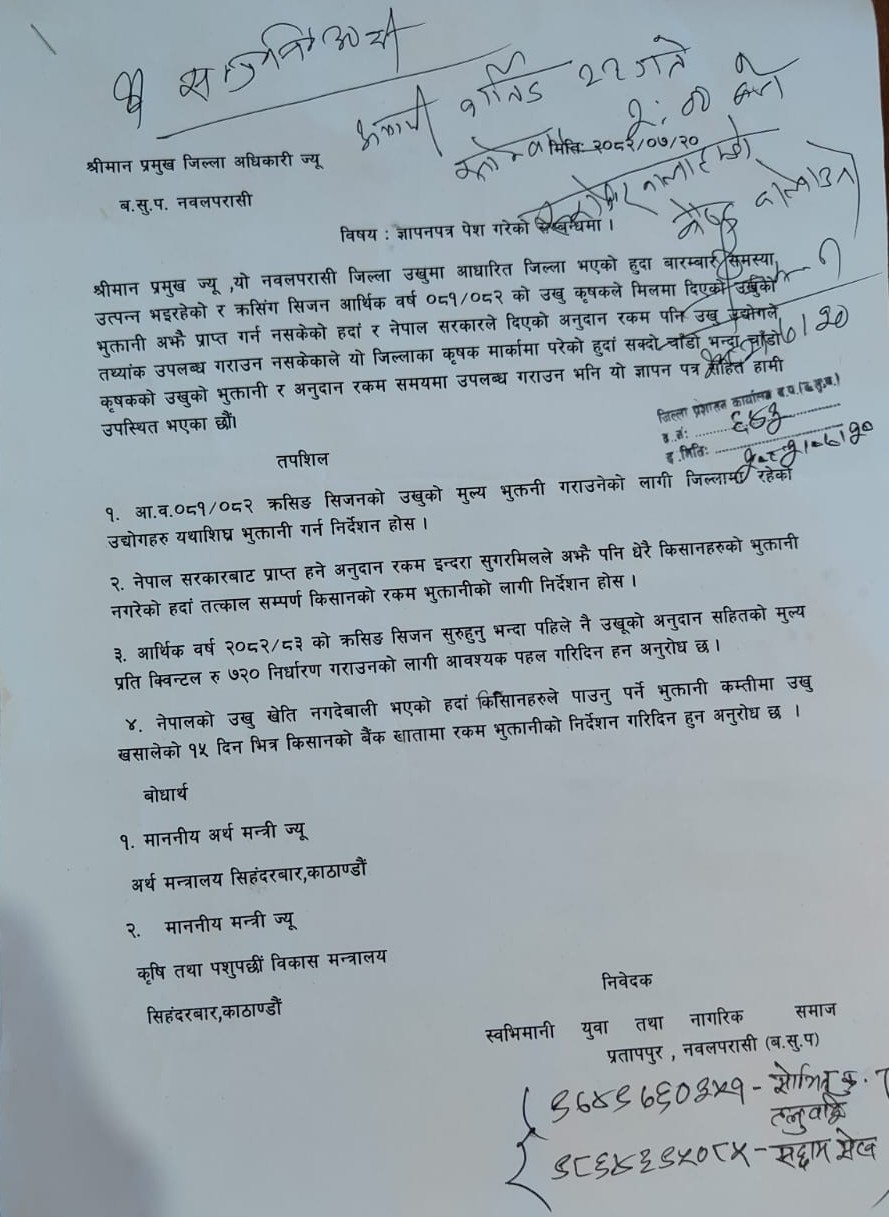 २२ गते
मिति: २०८२/०७/२०
श्रीमान प्रमुख जिल्ला अधिकारी ज्यू
ब.सु.प. नवलपरासी
विषय : ज्ञापनपत्र पेश गरेको सम्बन्धमा ।
श्रीमान प्रमुख ज्यू ,यो नवलपरासी जिल्ला उखुमा आधारित जिल्ला भएको हुदा बारम्बार समस्या
उत्पन्न भइरहेको र क्रसिंग सिजन आर्थिक वर्ष ०८१/०८२ को उखु कृषकले मिलमा दिएको उखुको
भुक्तानी अझै प्राप्त गर्न नसकेको हदां र नेपाल सरकारले दिएको अनुदान रकम पनि उखु उद्योगले
तथ्यांक उपलब्ध गराउन नसकेकाले यो जिल्लाका कृषक मार्कामा परेको हुदां सक्दो चाँडो भन्दा चाँडो
कृषकको उखुको भुक्तानी र अनुदान रकम समयमा उपलब्ध गराउन भनि यो ज्ञापन पत्र सहित हामी
उपस्थित भएका छौं।
जिल्ला प्रशासन कार्यालय
द.मिति:
तपशिल
१. आ.व.०८१/०८२ क्रसिङ सिजनको उखुको मुल्य भुक्तनी गराउनेको लागी जिल्लामा रहेको
उद्योगहरु यथाशिघ्र भुक्तानी गर्न निर्देशन होस ।
२. नेपाल सरकारबाट प्राप्त हने अनुदान रकम इन्दरा सुगरमिलले अझै पनि धेरै किसानहरुको भुक्तानी
नगरेको हदां तत्काल सम्पर्ण किसानको रकम भुक्तानीको लागी निर्देशन होस ।
३. आर्थिक वर्ष २०८२/८३ को क्रसिङ सिजन सुरुहुनु भन्दा पहिले नै उखूको अनुदान सहितको मुल्य
प्रति क्विन्टल रु ७२० निर्धारण गराउनको लागी आवश्यक पहल गरिदिन हन अनुरोध छ ।
४. नेपालको उखु खेति नगदेबाली भएको हदां किसिानहरुले पाउनु पर्ने भुक्तानी कम्तीमा उखु
खसालेको १५ दिन भित्र किसानको बैंक खातामा रकम भुक्तानीको निर्देशन गरिदिन हुन अनुरोध छ ।
बोधार्थ
१. माननीय अर्थ मन्त्री ज्यू
अर्थ मन्त्रालय सिहंदरबार,काठाण्डौं
२. माननीय मन्त्री ज्यू
कृषि तथा पशुपछीं विकास मन्त्रालय
सिहंदरबार,काठाण्डौं
निवेदक
स्वभिमानी युवा तथा नागरिक समाज
प्रतापपुर , नवलपरासी (ब.सु.प)